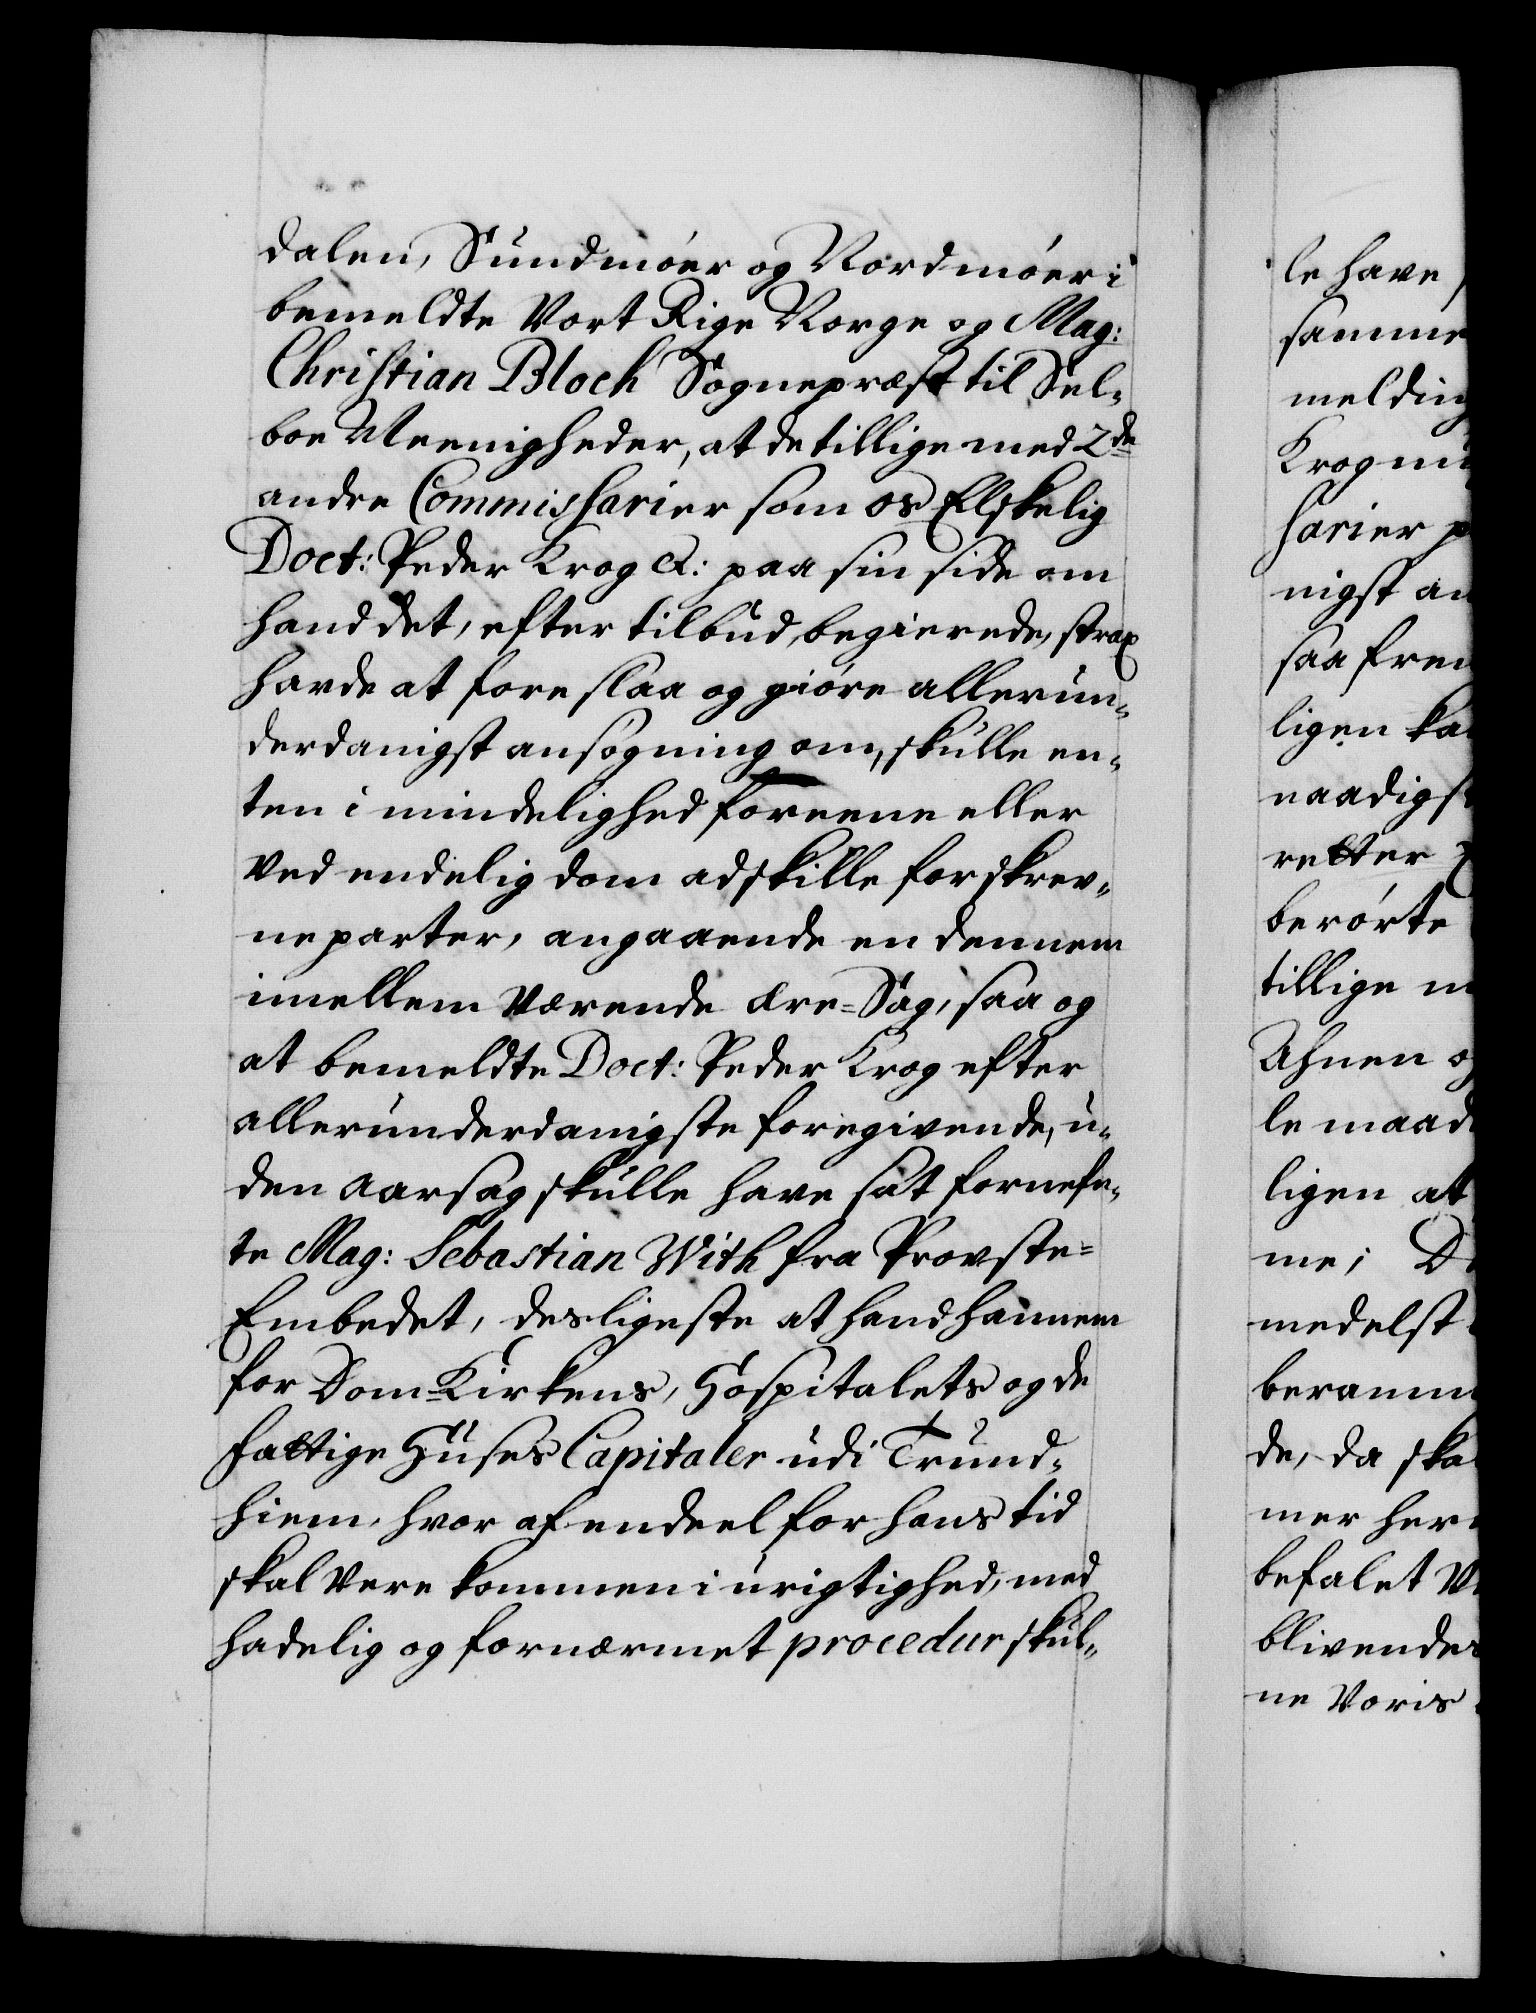 dalen, Sundmöer og Nordmöer i
bemeldte Vort Rige Norge og Mag:
Christian Bloch Sognepræst til Sel-
boe Meenigheder, at de tillige med 2de
andre Commissarier som os Elskelig
Doct: Peder Krog &: paa sin side om
hand det, efter tilbud, begierede, strax
havde at foreslaa og giöre allerun-
derdanigst ansögning om, skulle en-
ten i mindelighed foreene eller
ved endelig dom adskille forskrev-
ne parter, angaaende en dennem
imellem værende Ære-Sag, saa og
at bemeldte Doct: Peder Krog efter
allerunderdanigste foregivende, u-
den aarsag skulle have sat fornefn-
te Mag: Sebastian With fra Provste-
Embedet, desligeste at hand hannem
for Dom-Kirkens, Hospitalets og de
fattige Huses Capitaler udi Trund-
hiem, hvor af endeel for hans tid
skal vere kommen i urigtighed, med
hadelig og fornærmet procedur skul-
le have
samme
melding
Krog
sarier
nigst an
saa frem
ligen ka
naadigst
retter
berörte
tillige m
Ahnen o
le maad
ligen at
me; D
medelst
beramm
de, da ska
mer her
befalet V
blivendes
ne Voris